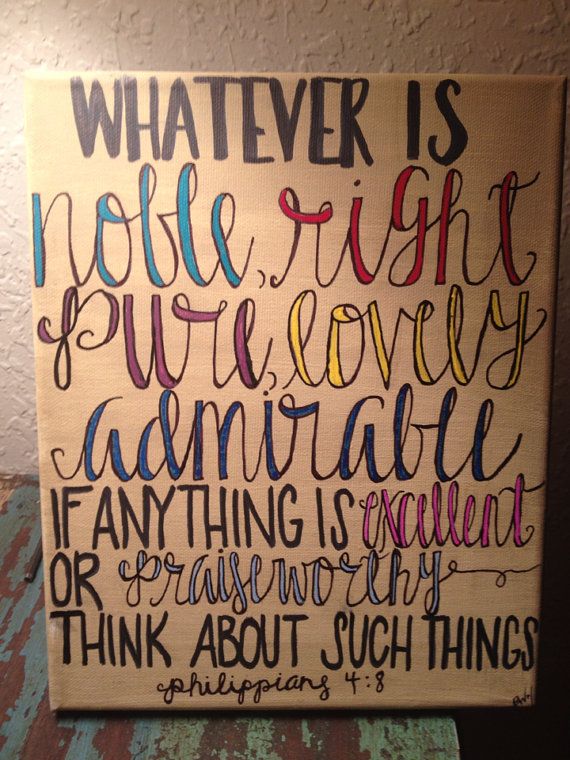 WHATEVER IS
noble, right
pure, lovely
admirable
IF ANYTHING IS excellent
OR praiseworthy
THINK ABOUT SUCH THINGS
philippians 4:8